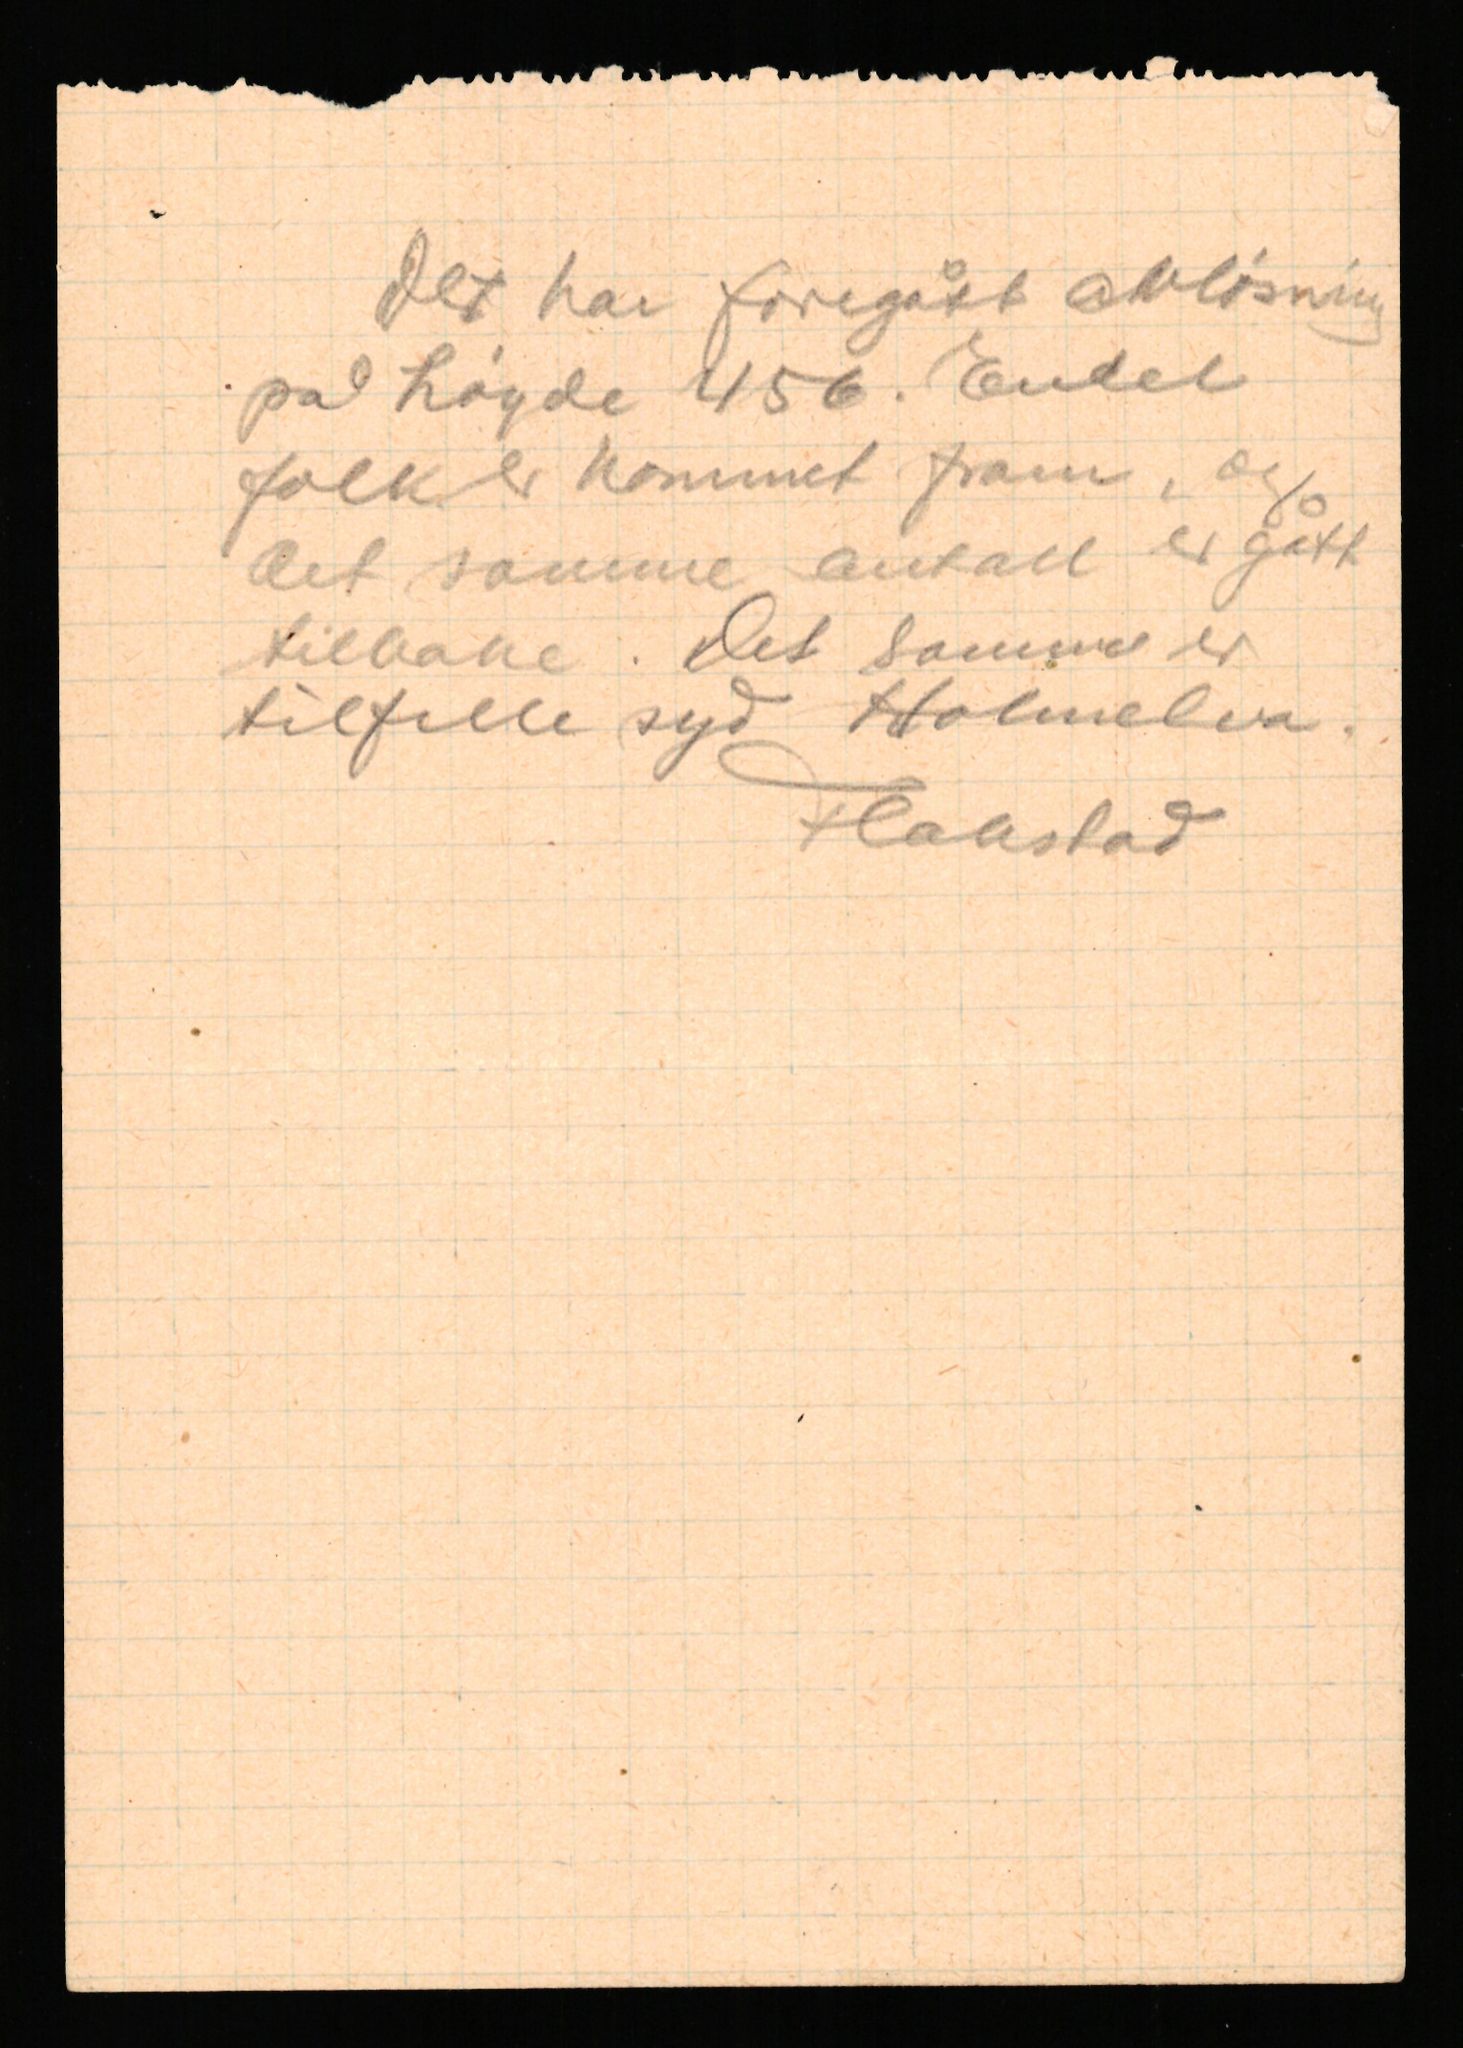 Det har foregått avlösning
på höyde 456. Endel
folk er kommet fram, og
det samme antall er gått
tilbake. Det samme er
tilfelle syd Holmelva.
Flakstad